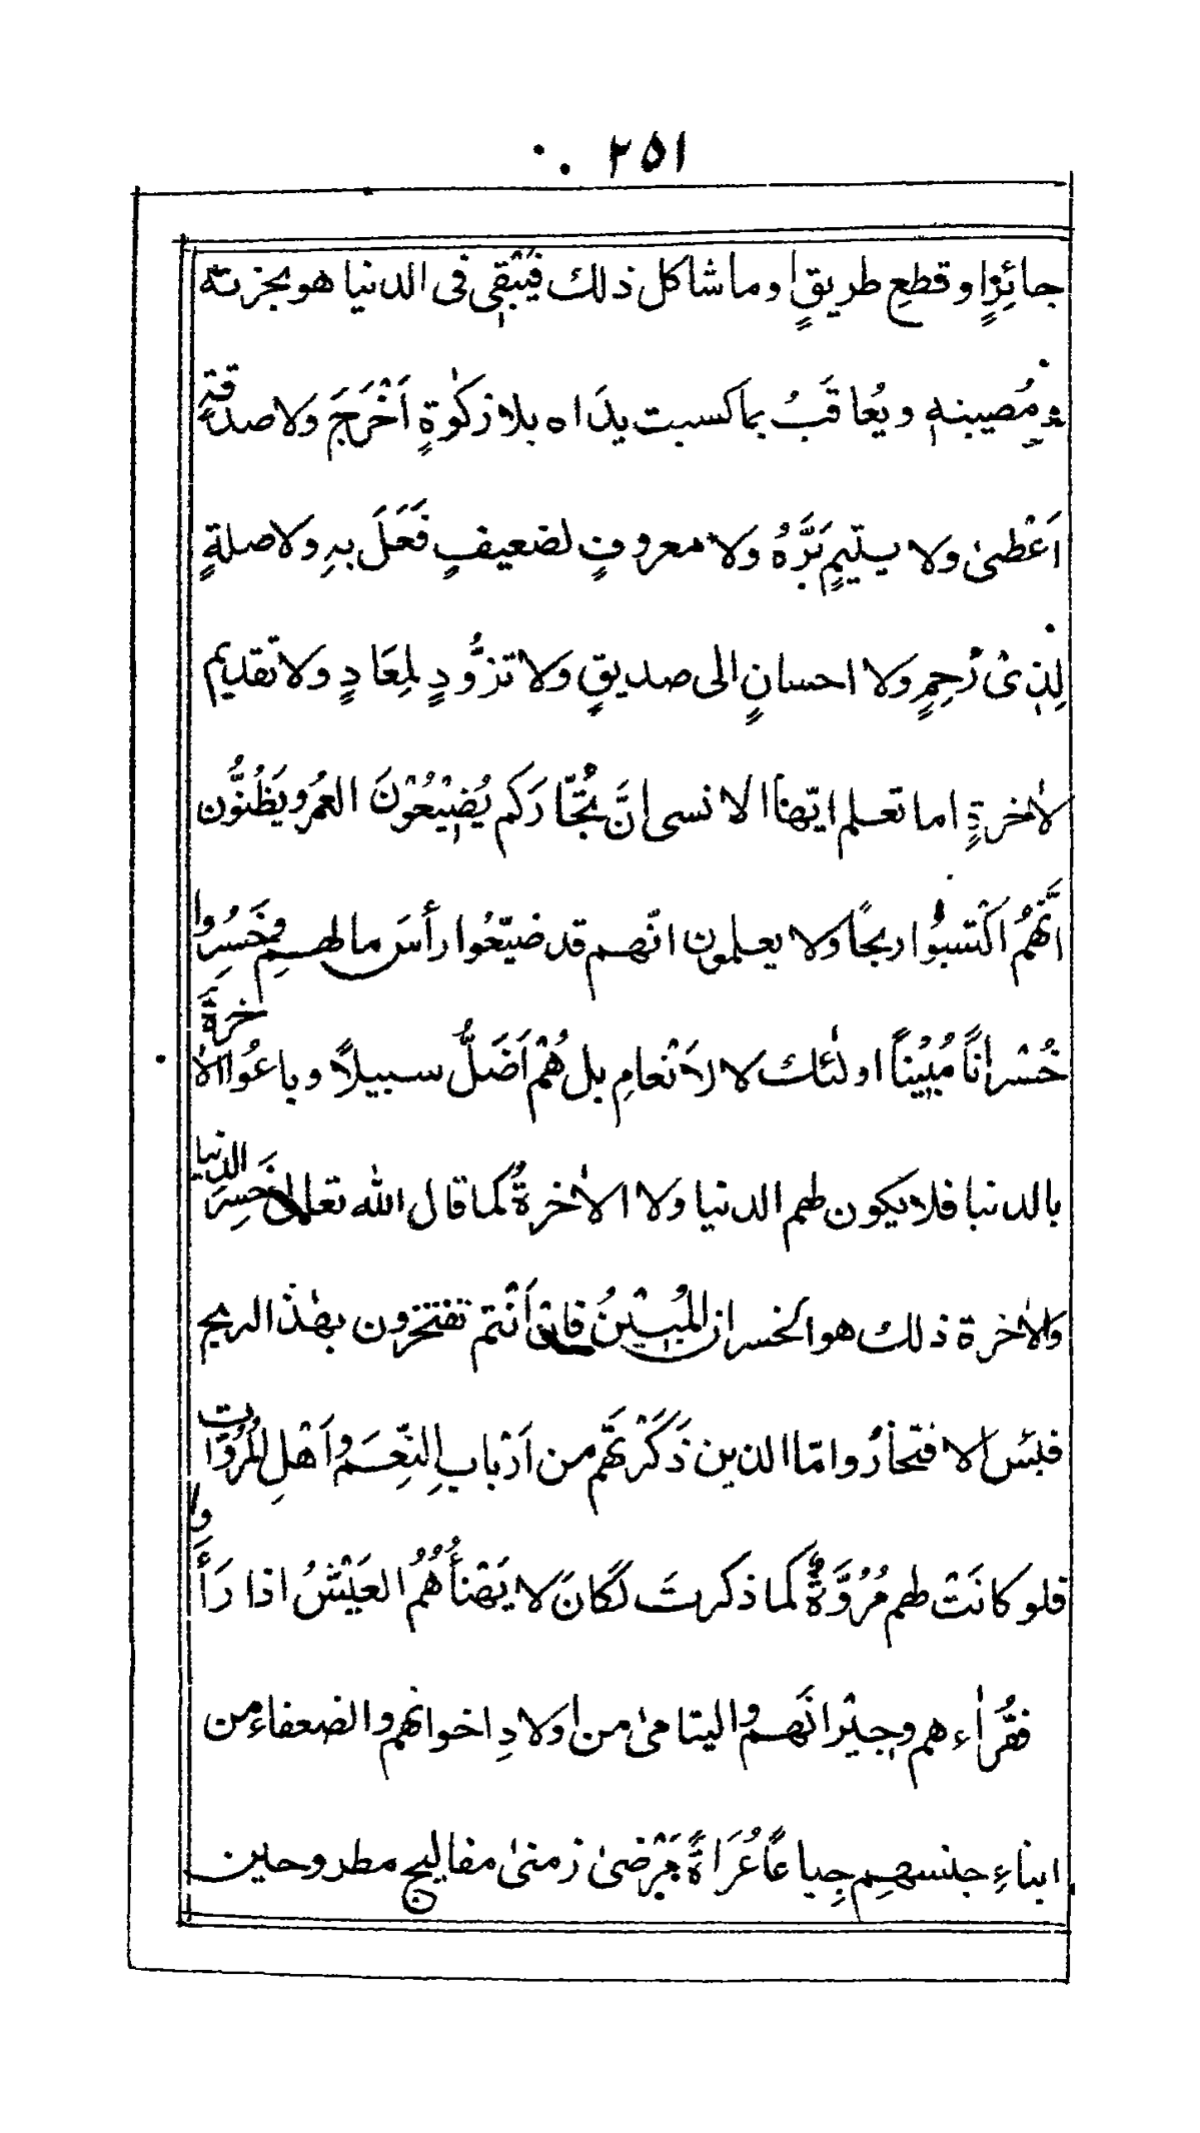 ٢٥١
جائِرٍ او قطعِ طريقٍ او ما شاكل ذلك فيَبْقٰى فى الدنيا هو بحزنه
و مُصيبنه و يُعاقَبُ بما كسبت يدَاه بلا زكٰوةٍ اَخْرَجَ ولا صدقةٍ
اَعْطىٰ ولا يتيمٍ بَرَّهُ ولا معروفٍ لضعيفٍ فَعَلَ بهِ ولا صلةٍ
لِذِىْ رَحِمٍ ولا احسانٍ الى صديقٍ ولا تزوُّدٍ لمِعَادٍ ولا تقديم
لاٰخرةٍ اما تعلم ايّها الانسى انَّ تُجّاركم يُضيْعُوْنَ العمُرَ و يَظُنُّون
اَنَّهُمُ اكْتسبُوا ربحًا ولا يعلمون انّهم قد ضيّعُوا رأسَ مالهم و خَسِرُوا
خُسْرانًا مُبيْنًا اولٰئك كالاَنْعامِ بل هُمْ اَضَلُّ سبيلاً و باعُوا الاٰخرةَ
بالدنيا فلا يكون لهم الدنيا ولا الاٰخرةُ كما قال اللّٰه تعالى خَسِرَ الدنيا
والاٰخرة ذلك هو الخسران المُبيْنُ فان اَنْتم تفتخرون بهٰذ الربح
فبئس الافتخارُ و امّا الذين ذَكَرْتَهُم من اَرْبابِ النِّعَم و اَهْلِ المُرُوّات
فلو كانَتْ لهم مُرُوَّةٌ كما ذكرتَ لكَانَ لا يَهْنَأُهُمُ العَيْشُ اذا رَأَوا
فقُراٰءهم و جيْرانَهم و اليتامىٰ من اولادِ اخوانهم و الضعفاء من
ابناءِ جنسهِم جِياعًا عُرَاةً مَرْضىٰ زمنىٰ مفاليج مطروحين